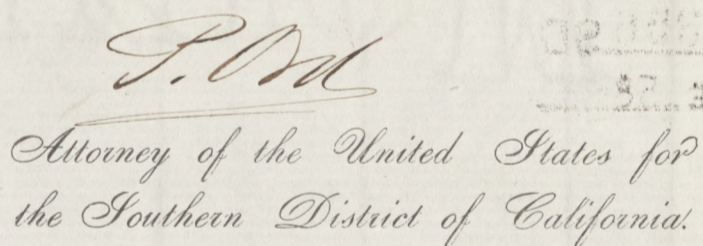 P. Ord
Attorney of the United States for
the Southern District of California.